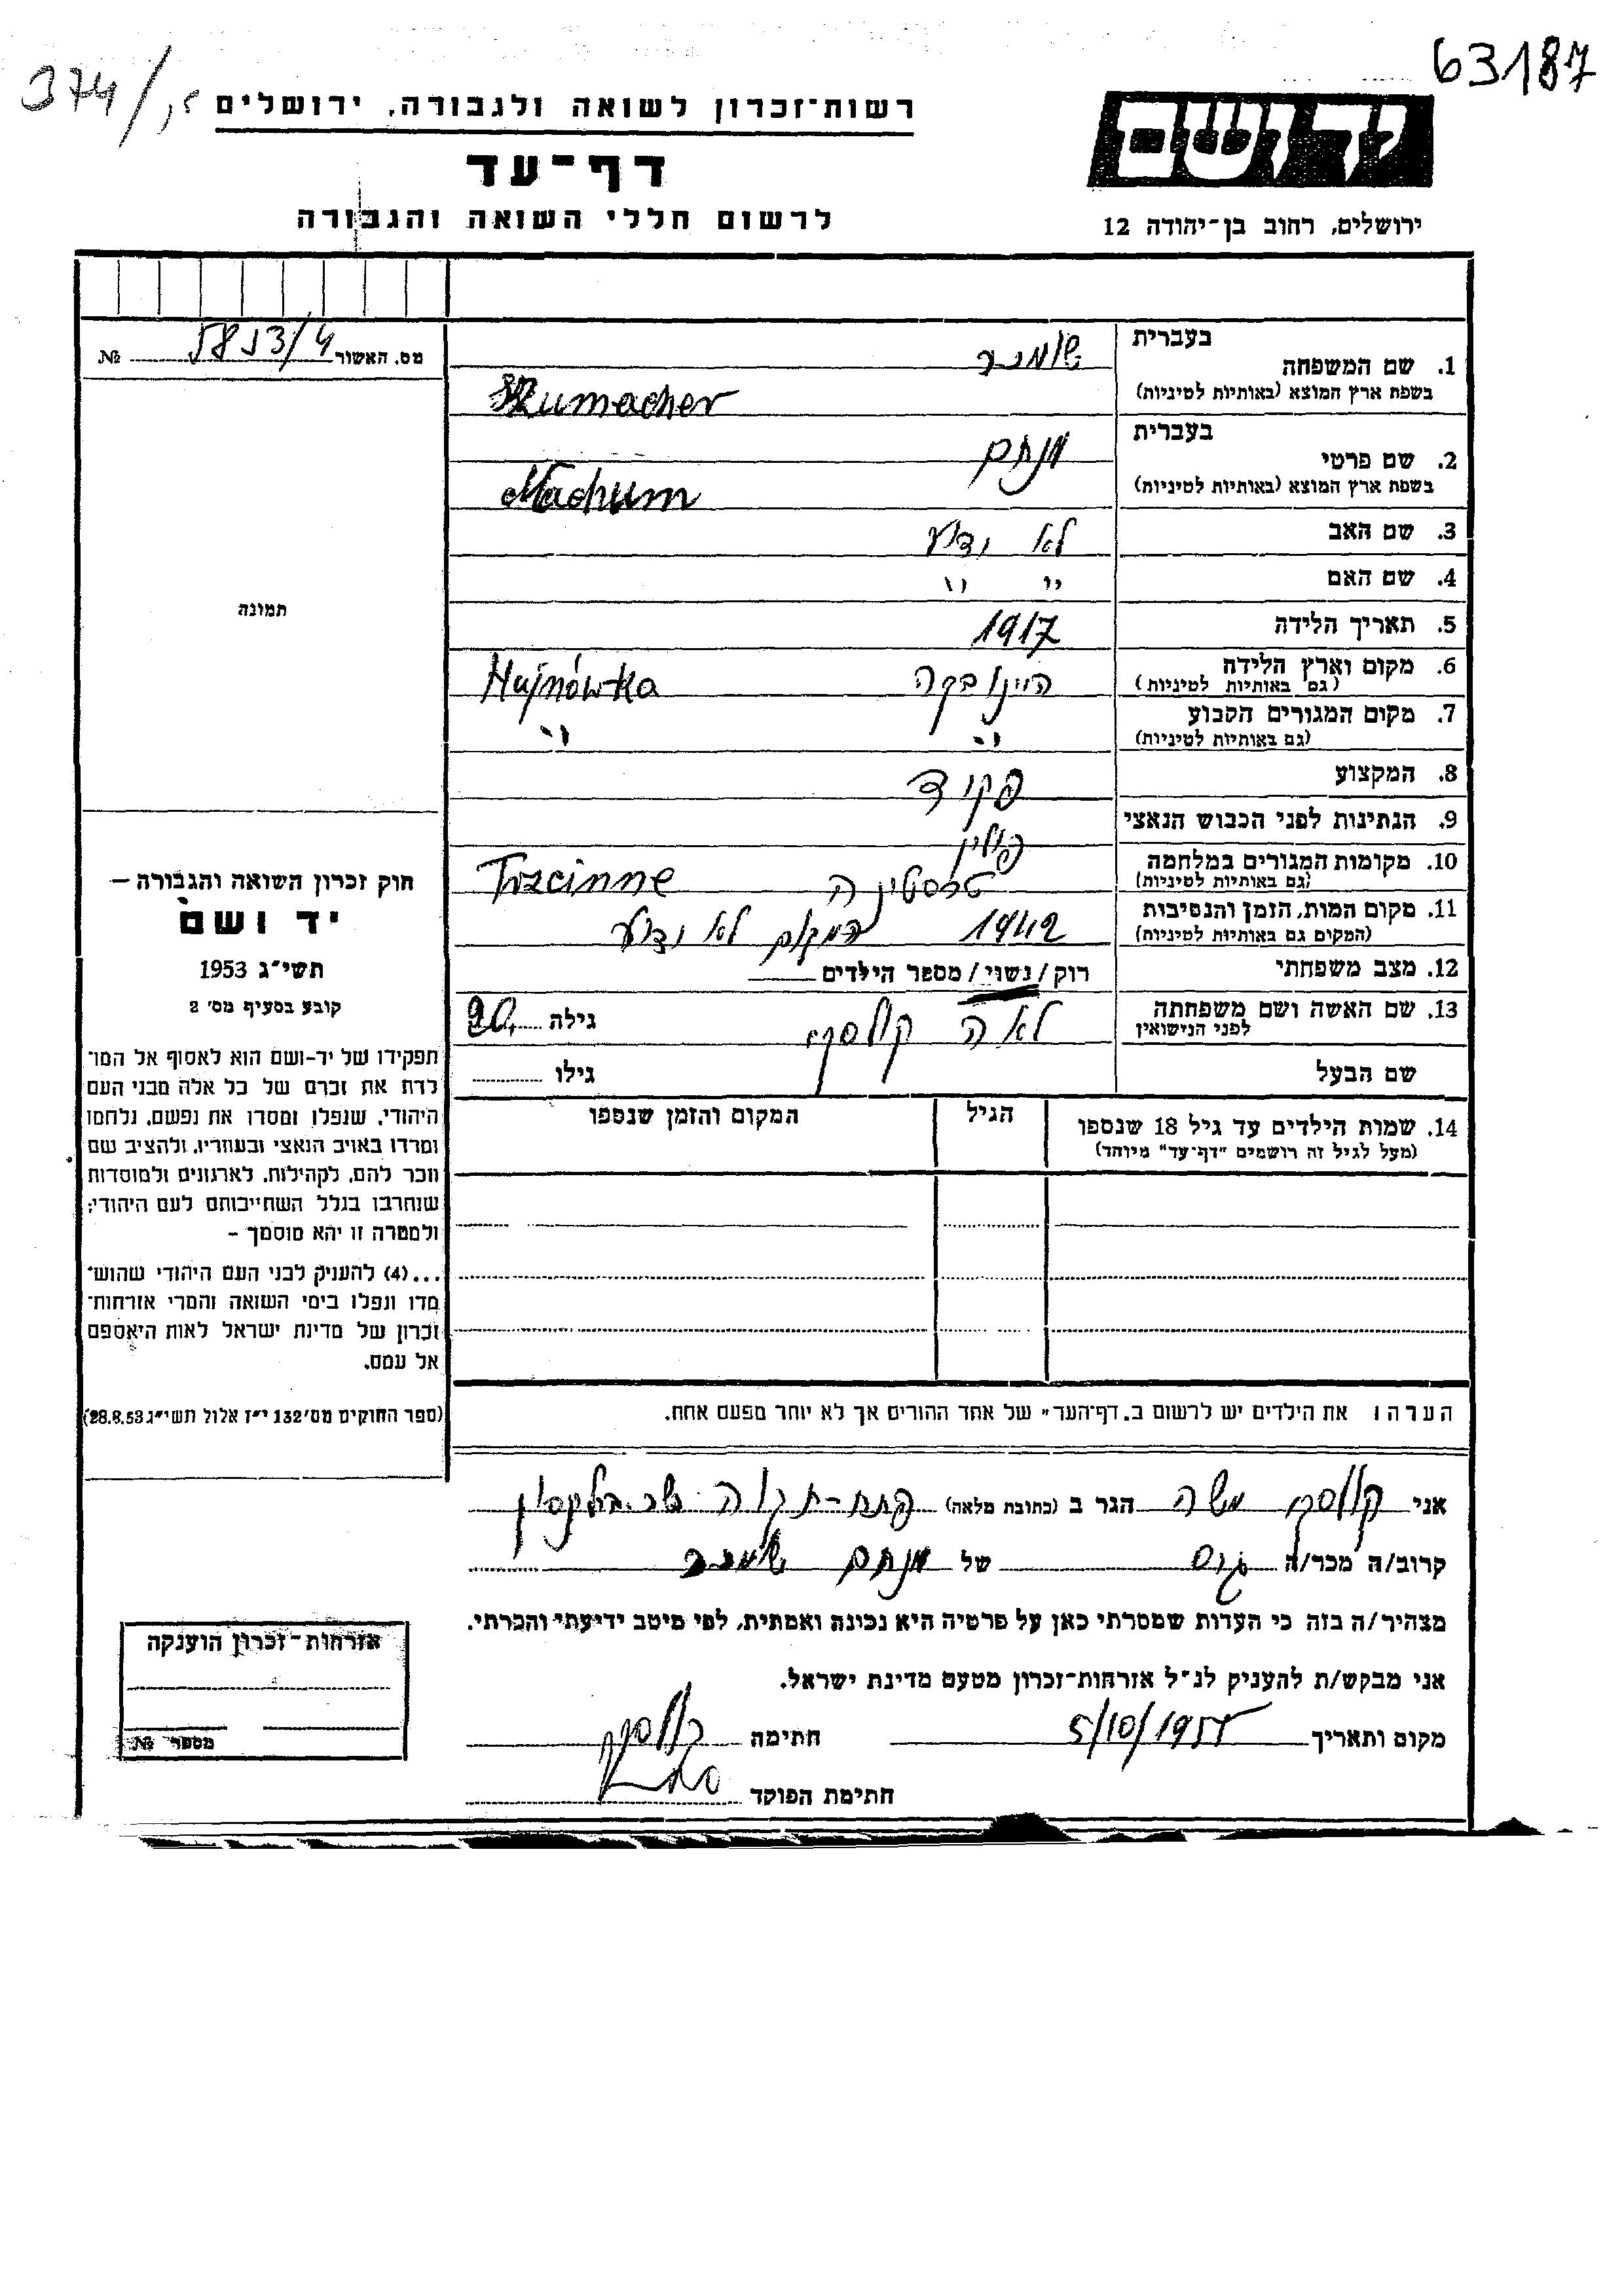 63187
374/
רשות־זכרון לשואה ולגבורה, ירושלים
יד ושם
דף־עד
לרשום חללי השואה והגבורה
ירושלים, רחוב בן־יהודה 12
מס. האשור 5853/4 №
בעברית
1. שם המשפחה שומכר
בשפת ארץ המוצא (באותיות לטיניות) Szumacher
בעברית
2. שם פרטי מנחם
בשפת ארץ המוצא (באותיות לטיניות) Nachum
3. שם האב לא ידוע
4. שם האם " "
5. תאריך הלידה 1917
6. מקום וארץ הלידה היינובקה Hajnówka
(גם באותיות לטיניות)
7. מקום המגורים הקבוע " "
(גם באותיות לטיניות)
8. המקצוע פקיד
9. הנתינות לפני הכבוש הנאצי פולין
10. מקומות המגורים במלחמה טרסטינה Trzcinne
(גם באותיות לטיניות)
11. מקום המות, הזמן והנסיבות 1942 המקום לא ידוע
(המקום גם באותיות לטיניות)
12. מצב משפחתי רוק / נשוי / מספר הילדים
13. שם האשה ושם משפחתה לאה קולסקי גילה 20
לפני הנישואין
שם הבעל גילו
14. שמות הילדים עד גיל 18 שנספו הגיל המקום והזמן שנספו
(מעל לגיל זה רושמים "דף־עד" מיוחד)
תמונה
חוק זכרון השואה והגבורה —
יד ושם
תשי"ג 1953
קובע בסעיף מס' 2
תפקידו של יד-ושם הוא לאסוף אל המו־
לדת את זכרם של כל אלה מבני העם
היהודי, שנפלו ומסרו את נפשם, נלחמו
ומרדו באויב הנאצי ובעוזריו, ולהציב שם
וזכר להם, לקהילות, לארגונים ולמוסדות
שנחרבו בגלל השתייכותם לעם היהודי;
ולמטרה זו יהא מוסמך –
...(4) להעניק לבני העם היהודי שהוש־
מדו ונפלו בימי השואה והמרי אזרחות־
זכרון של מדינת ישראל לאות היאספם
אל עמם.
(ספר החוקים מס' 132 י"ז אלול תשי"ג 28.8.53)
הערה: את הילדים יש לרשום ב,דף־העד" של אחד ההורים אך לא יותר מפעם אחת.
אני קולסקי משה הגר ב (כתובת מלאה) פתח-תקוה
קרוב/ה מכר/ה גיס של מנחם שומכר
מצהיר/ה בזה כי העדות שמסרתי כאן על פרטיה היא נכונה ואמתית, לפי מיטב ידיעתי והכרתי.
אני מבקש/ת להעניק לנ"ל אזרחות־זכרון מטעם מדינת ישראל.
מקום ותאריך 5/10/1955 חתימה קולסקי
חתימת הפוקד
אזרחות־זכרון הוענקה
מספר №